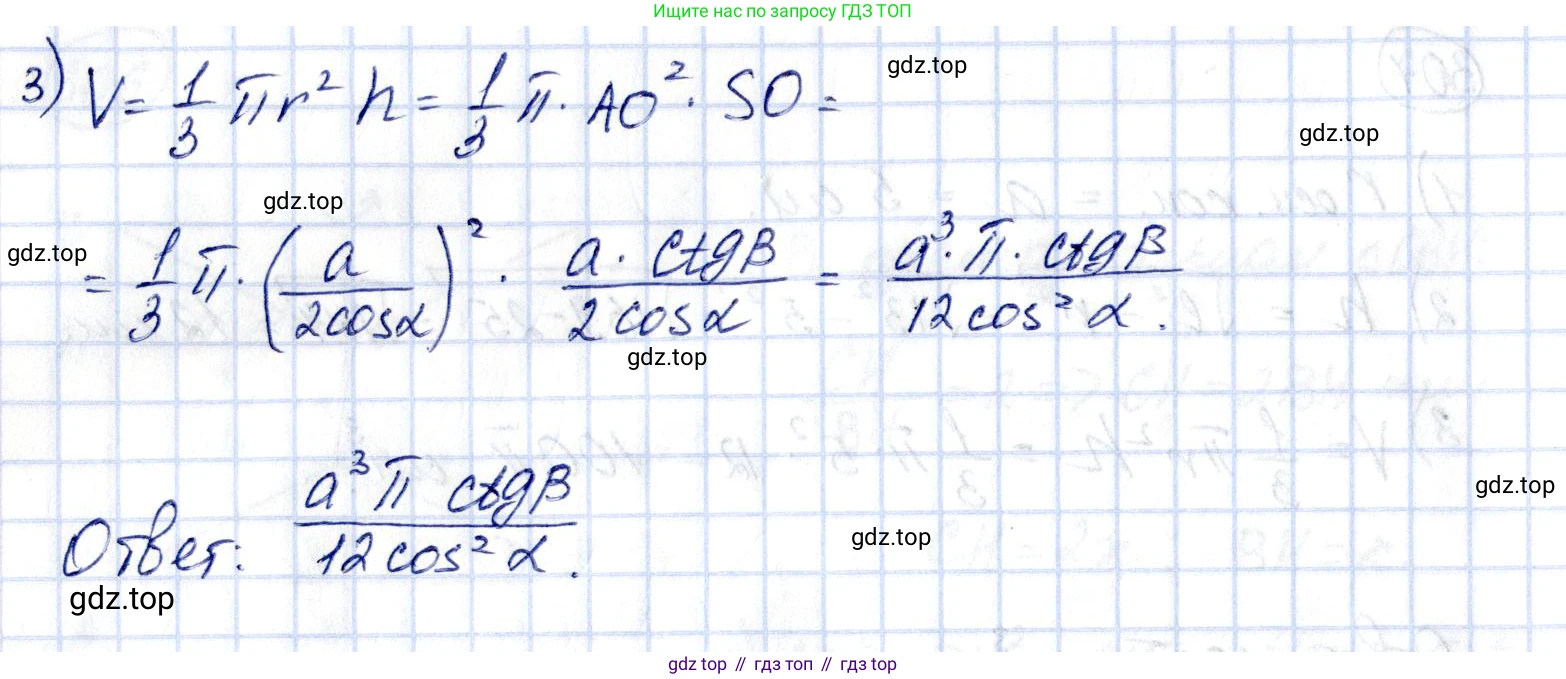 Ищите нас по запросу ГДЗ ТОП
3) V = 1/3 πr² h = 1/3 π · AO² · SO =
gdz.top
gdz.top
gdz.top
gdz.top
= 1/3 π · (a/2cosα)² · a · ctgβ/2cosα = a³ · π · ctgβ/12cos²α.
gdz.top
gdz.top
Ответ: a³π ctgβ/12cos²α.
gdz.top
gdz.top
gdz top // гдз топ // гдз top